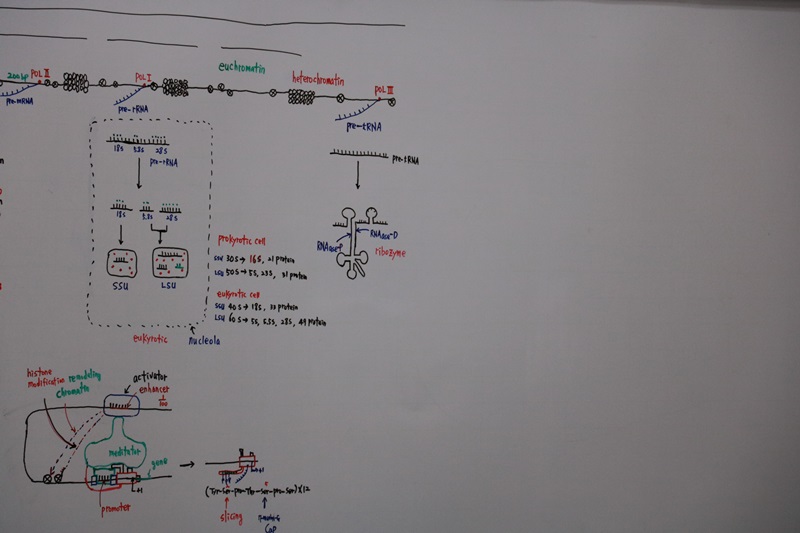 euchromatin
200bp POL II
POL I
heterochromatin
POL III
pre-mRNA
pre-rRNA
pre-tRNA
18S 5.8S 28S
pre-rRNA
pre-tRNA
18S 5.8S 28S
SSU LSU
RNAase-P
RNAase-D
ribozyme
prokyrotic cell
SSU 30S → 16S, 21 protein
LSU 50S → 5S, 23S, 31 protein
eukyrotic cell
SSU 40S → 18S, 33 protein
LSU 60S → 5S, 5.8S, 28S, 49 protein
eukyrotic
nucleola
histone
modification
remodeling
chromatin
activator
enhancer
1/200
meditator
gene
+1
promoter
+1
(Tyr-Ser-pro-Thr-Ser-pro-Ser)×12
slicing
Cap